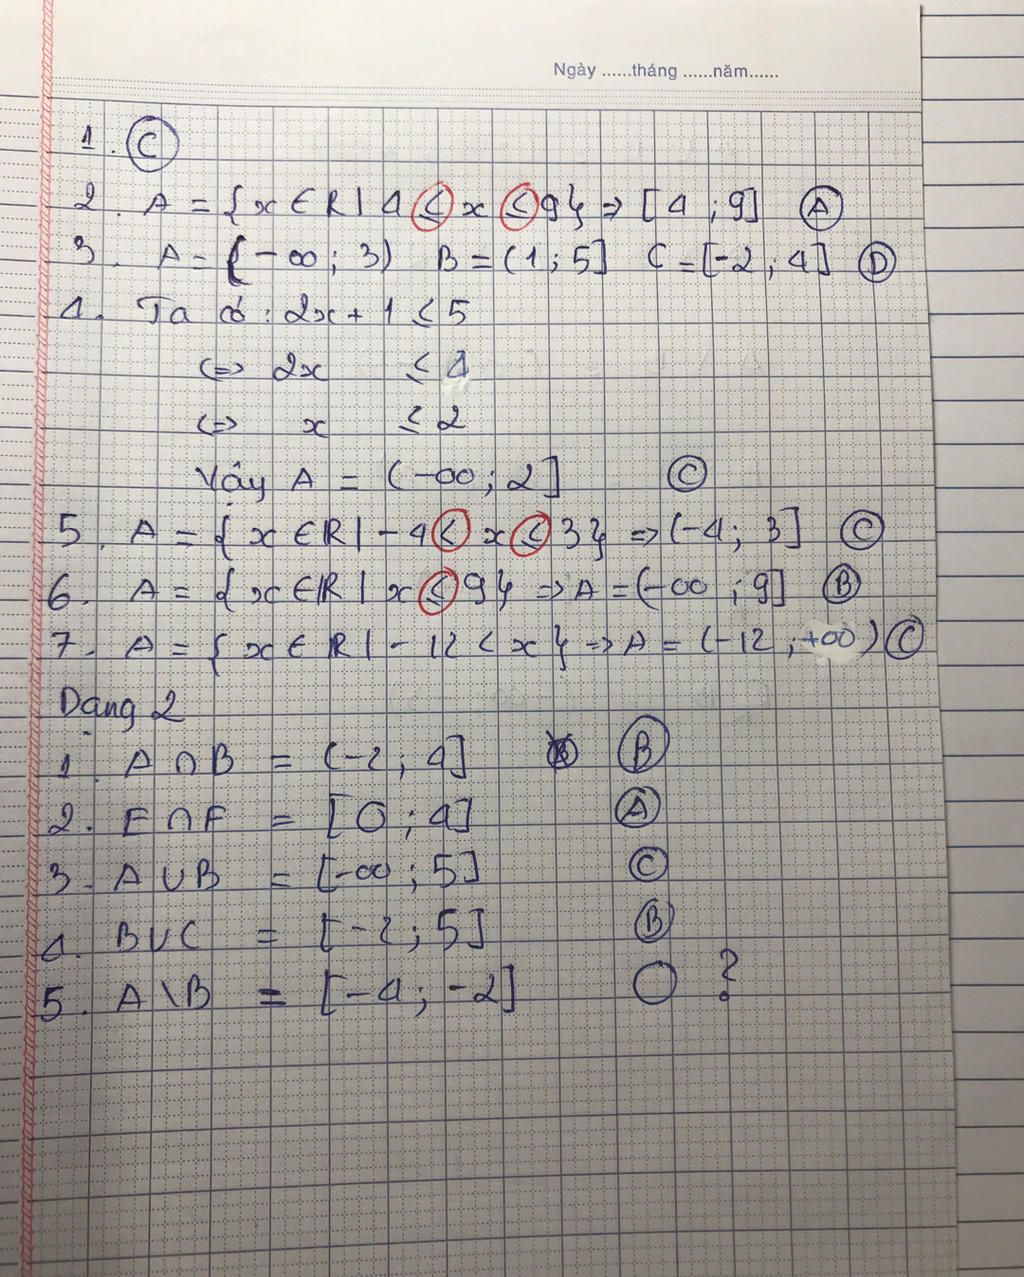 Ngày ......tháng ......năm......
1. C
2. A = {x ∈ R | 4 ≤ x ≤ 9} => [4 ; 9] A
3. A = (-∞ ; 3) B = (1 ; 5] C = [-2 ; 4] D
4. Ta có : 2x + 1 ≤ 5
<=> 2x ≤ 4
<=> x ≤ 2
Vậy A = (-∞ ; 2] C
5. A = { x ∈ R | - 4 < x ≤ 3} => (-4 ; 3] C
6. A = { x ∈ R | x ≤ 9} => A = (-∞ ; 9] B
7. A = { x ∈ R | - 12 < x } => A = (-12 ; +∞) C
Dạng 2
1. A ∩ B = (-2 ; 4] B
2. E ∩ F = [0 ; 4] A
3. A ∪ B = [-∞ ; 5] C
4. B ∪ C = [-2 ; 5] B
5. A \ B = [-4 ; -2] ?